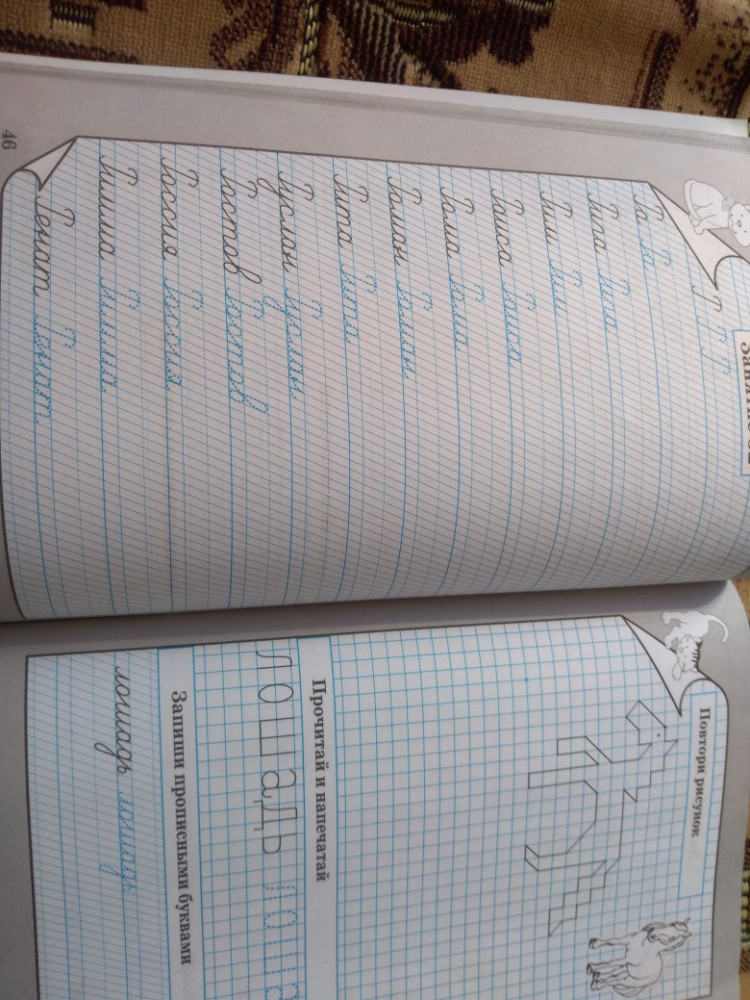 Занятие
Р Р Р
Ра Ра
Рига Рига
Рим Рим
Раиса Раиса
Рома Рома
Роман Роман
Рита Рита
Руслан Руслан
Ростов Ростов
Россия Россия
Римма Римма
Ренат Ренат
46
Повтори рисунок
Прочитай и напечатай
лошадь лоша
Запиши прописными буквами
лошадь лошадь